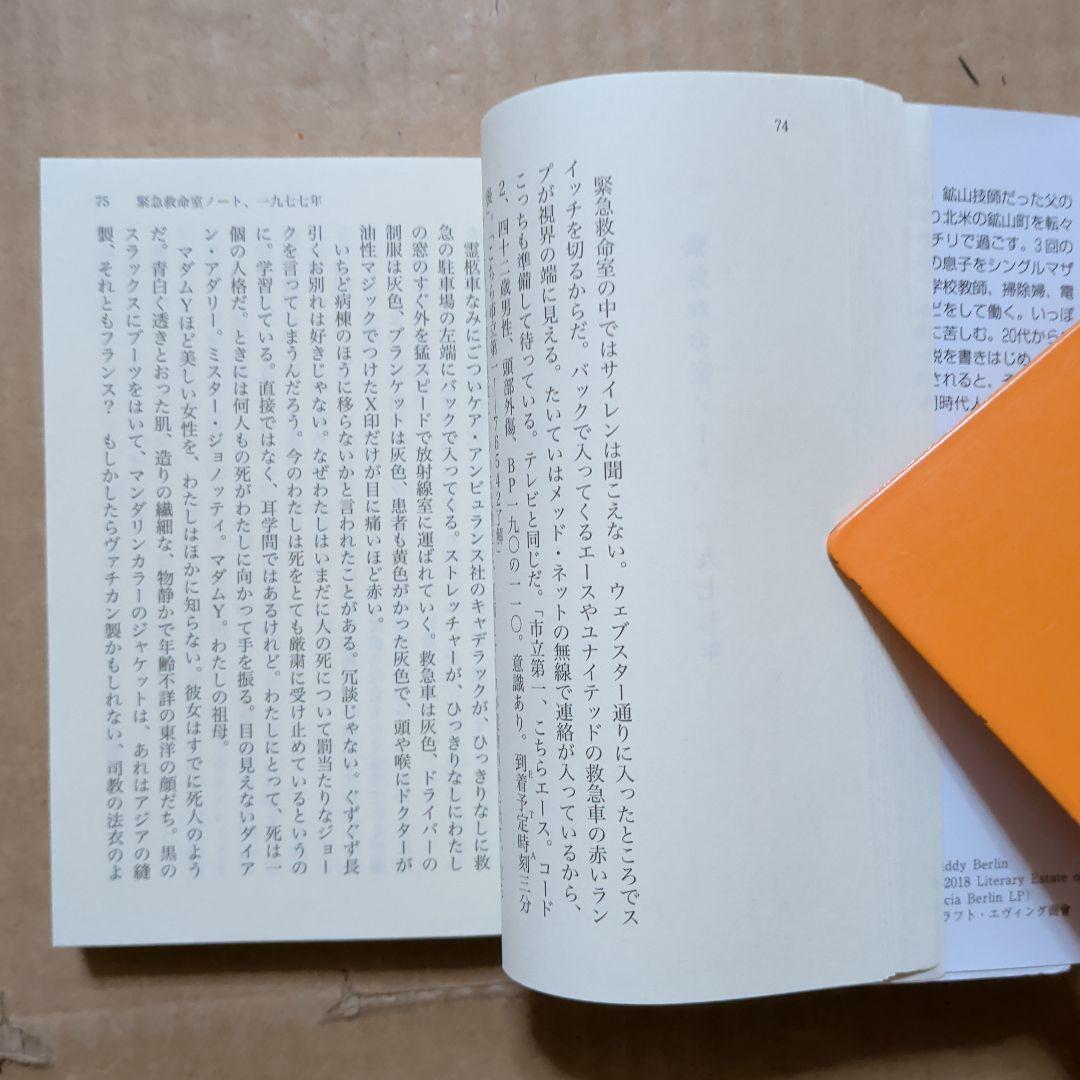 74
緊急救命室の中ではサイレンは聞こえない。ウェブスター通りに入ったところでス
イッチを切るからだ。バックで入ってくるエースやユナイテッドの救急車の赤いラン
プが視界の端に見える。たいていはメッド・ネットの無線で連絡が入っているから、
こっちも準備して待っている。テレビと同じだ。「市立第一、こちらエース。コード
2、四十二歳男性、頭部外傷、BP一九〇の一一〇。意識あり。到着予定時刻三分
ETA
75 緊急救命室ノート、一九七七年
霊柩車なみにごついケア・アンビュランス社のキャデラックが、ひっきりなしに救
急の駐車場の左端にバックで入ってくる。ストレッチャーが、ひっきりなしにわたし
の窓のすぐ外を猛スピードで放射線室に運ばれていく。救急車は灰色、ドライバーの
制服は灰色、ブランケットは灰色、患者も黄色がかった灰色で、頭や喉にドクターが
油性マジックでつけたX印だけが目に痛いほど赤い。
いちど病棟のほうに移らないかと言われたことがある。冗談じゃない。ぐずぐず長
引くお別れは好きじゃない。なぜわたしはいまだに人の死について罰当たりなジョー
クを言ってしまうんだろう。今のわたしは死をとても厳粛に受け止めているというの
に。学習している。直接ではなく、耳学問ではあるけれど。わたしにとって、死は一
個の人格だ。ときには何人もの死がわたしに向かって手を振る。目の見えないダイア
ン・アダリー。ミスター・ジョノッティ。マダムY。わたしの祖母。
マダムYほど美しい女性を、わたしはほかに知らない。彼女はすでに死人のよう
だ。青白く透きとおった肌、造りの繊細な、物静かで年齢不詳の東洋の顔だち。黒の
スラックスにブーツをはいて、マンダリンカラーのジャケットは、あれはアジアの縫
製、それともフランス？ もしかしたらヴァチカン製かもしれない、司教の法衣のよ
、鉱山技師だった父の
北米の鉱山町を転々
チリで過ごす。3回の
の息子をシングルマザ
学校教師、掃除婦、電
どをして働く。いっぽ
に苦しむ。20代から
説を書きはじめ
されると、
時代人
ddy Berlin
2018 Literary Estate o
cia Berlin LP)
ラフト・エヴィング商會